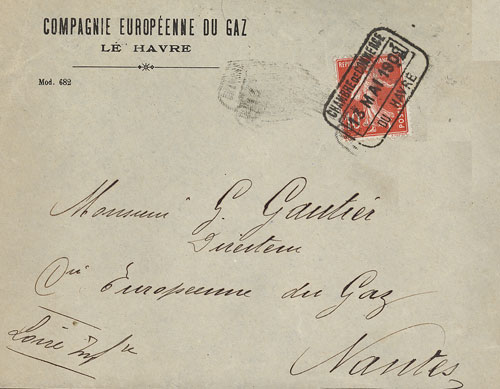 COMPAGNIE EUROPÉENNE DU GAZ
LE HAVRE
Mod. 682
CHAMBRE DE COMMERCE
13 MAI 190
DU HAVRE
POSTES
Monsieur G. Gautier
Directeur
Cie Européenne du Gaz
Nantes
Loire Infre